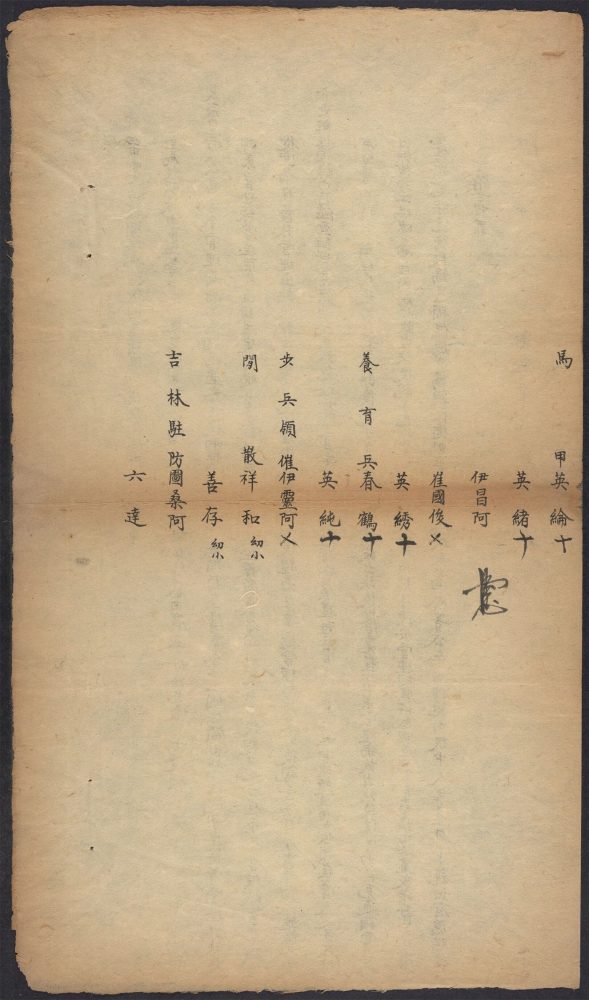 馬甲英綸十
英緒十
伊昌阿
崔國俊㐅
英綉十
養育兵春鶴十
英純十
步兵領催伊靈阿㐅
閒散祥和幼小
善存幼小
吉林駐防圖桑阿
六達